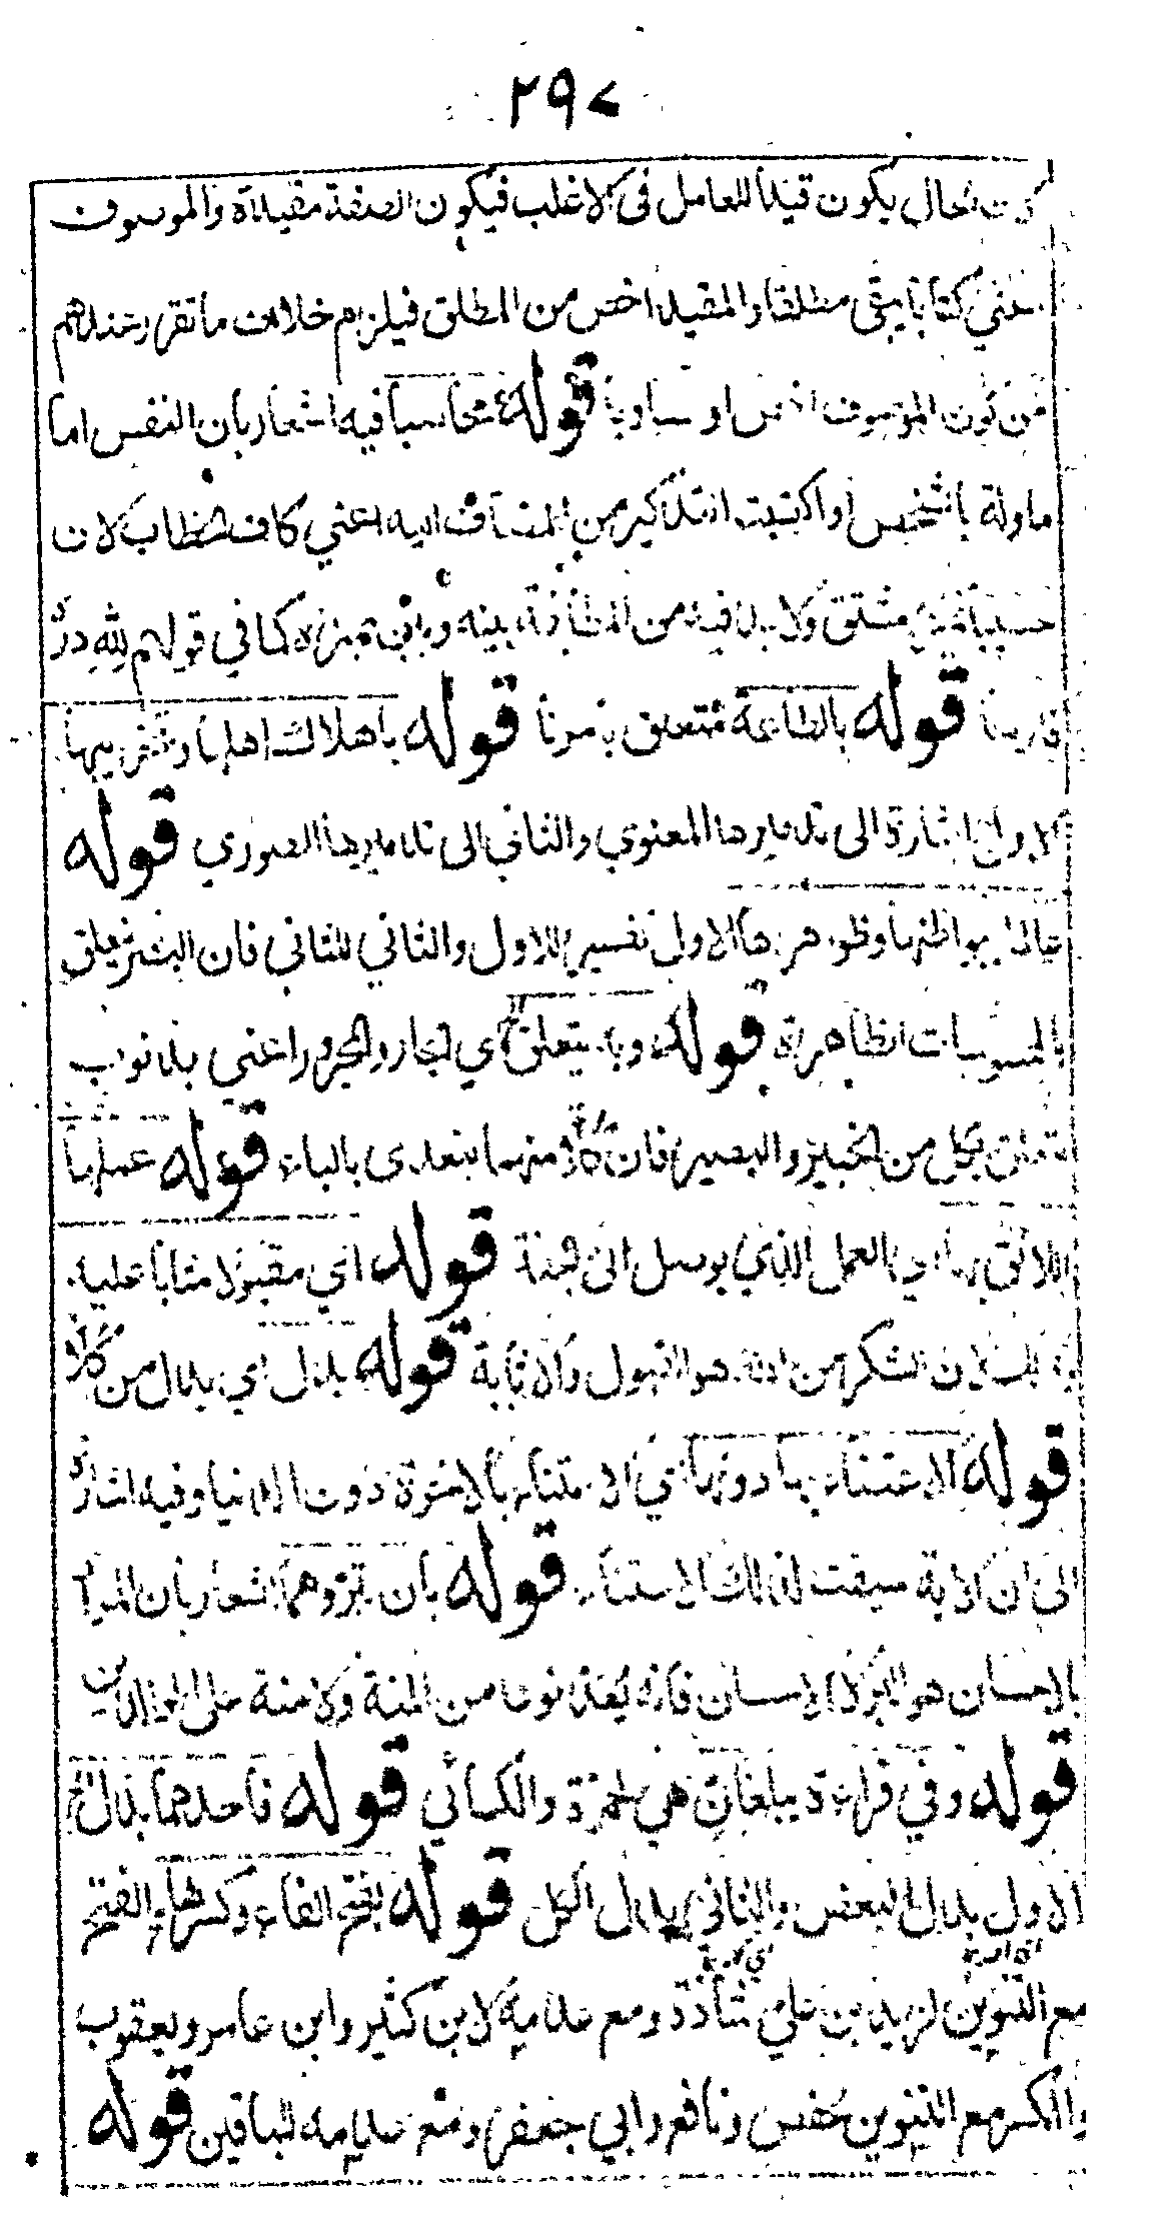 ٢٩٧
الحال يكون قيدا للعامل في الاغلب فيكون الصفة مقيدة والموصوف
اعني كتابا يبقى مطلقا والمقيد اخص من المطلق فيلزم خلاف ما تقرر عندهم
من كون الموصوف اخص او مساويا قوله محاسبا فيه اشعار بان النفس اما
ماولة بالشخص او اكتسبت التذكير من المضاف اليه اعني كاف الخطاب لان
حسيبا مشتق ولا بد فيه من المطابقة بينه وبين مميزه كما في قولهم لله دره
فارسا قوله بالطاعة متعلق بامرنا قوله باهلاك اهلها وتخريبها
الاول اشارة الى تدميرها المعنوي والثاني الى تدميرها الصوري قوله
عالما ببواطنها وظواهرها الاول تفسير للاول والثاني للثاني فان البصر يتعلق
بالمحسوسات الظاهرة قوله وبه يتعلق الخ اي الجار والمجرور اعني بذنوب
متعلق بكل من الخبير والبصير فان كلا منهما يتعدى بالباء قوله عملها
اللائق بها اي العمل الذي يوصل الى الجنة قوله اي مقبولا مثابا عليه
وذلك لان الشكر من الله هو القبول والاثابة قوله بدل اي بدل من كلا
قوله الاعتناء بها دونها اي الاعتناء بالاخرة دون الدنيا وفيه اشارة
الى ان الاية سيقت لذلك الاعتناء قوله بان تبروهما اشعار بان المراد
بالاحسان هو البر لا الاحسان فانه يعد نوعا من المنة ولا منة على الوالدين
قوله وفي قراءة يبلغان هي لحمزة والكسائي قوله فاحدهما بدل الخ
الاول بدل البعض والثاني بدل الكل قوله بفتح الفاء وكسرها الفتح
مع التنوين لزيد بن علي شاذة ومع عدمه لابن كثير وابن عامر ويعقوب
والكسر مع التنوين لحفص ونافع وابي جعفر ومع عدمه للباقين قوله